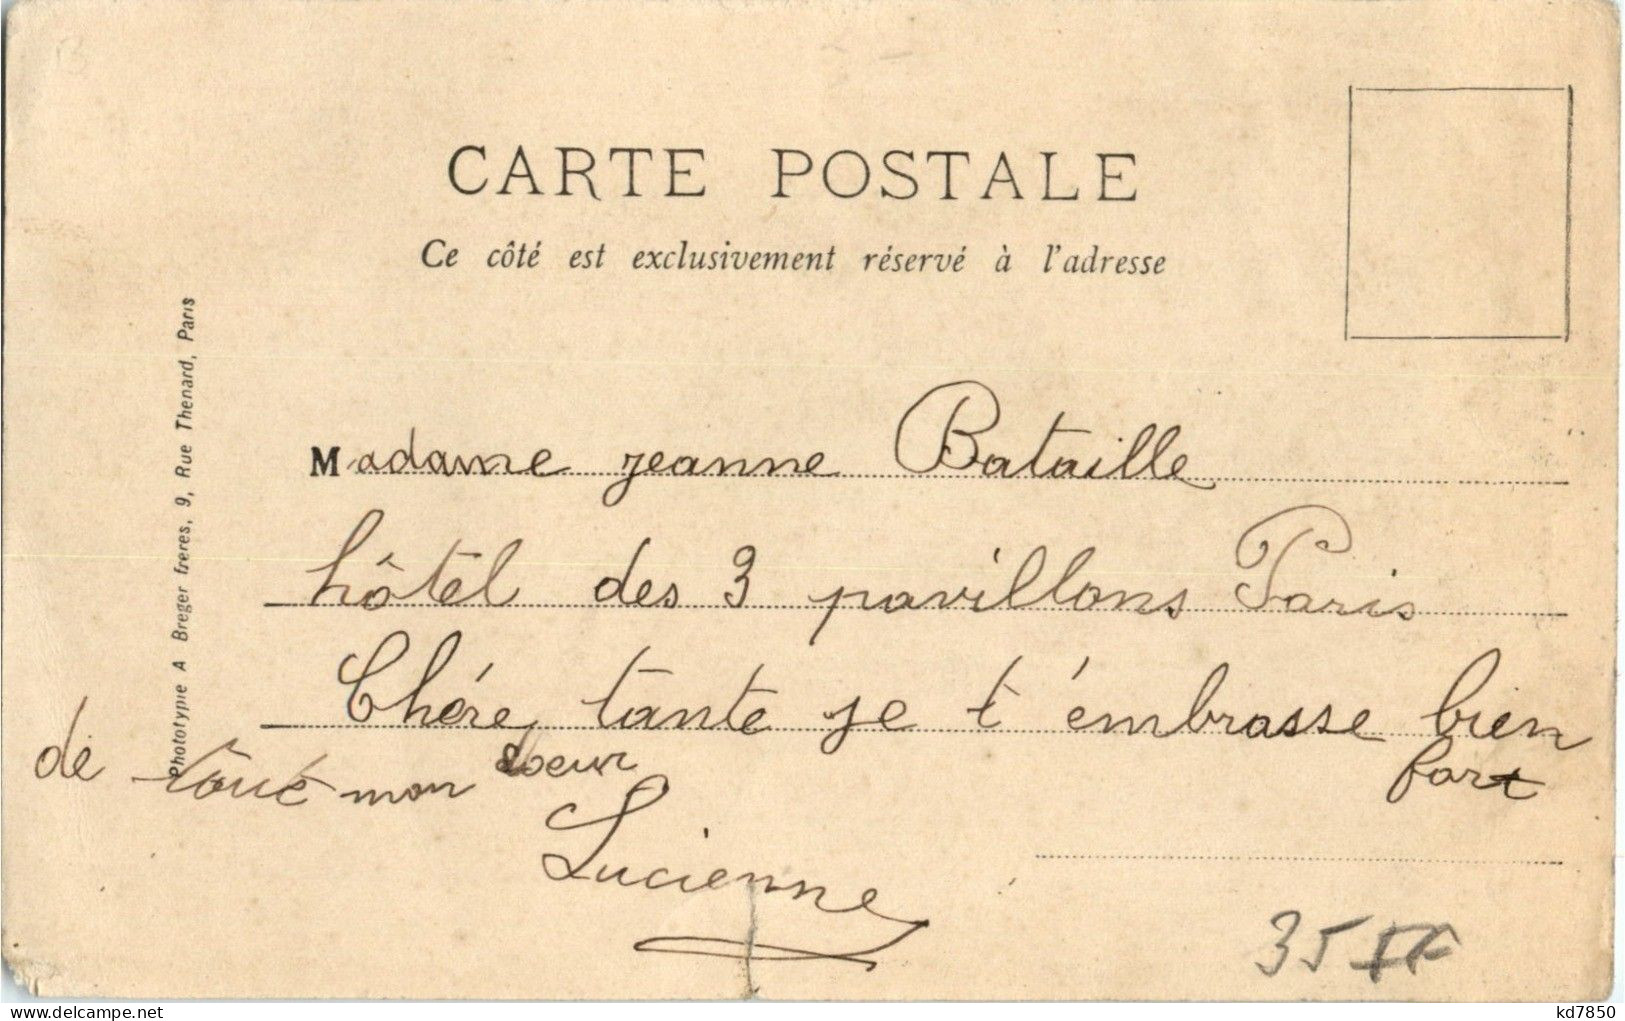 CARTE POSTALE
Ce côté est exclusivement réservé à l'adresse
Phototypie A Breger freres, 9, Rue Thenard, Paris
Madame jeanne Bataille
hôtel des 3 pavillons Paris
Chére tante je t'émbrasse bien
fort
de tout mon coeur
Lucienne
35 FF
www.delcampe.net
kd7850